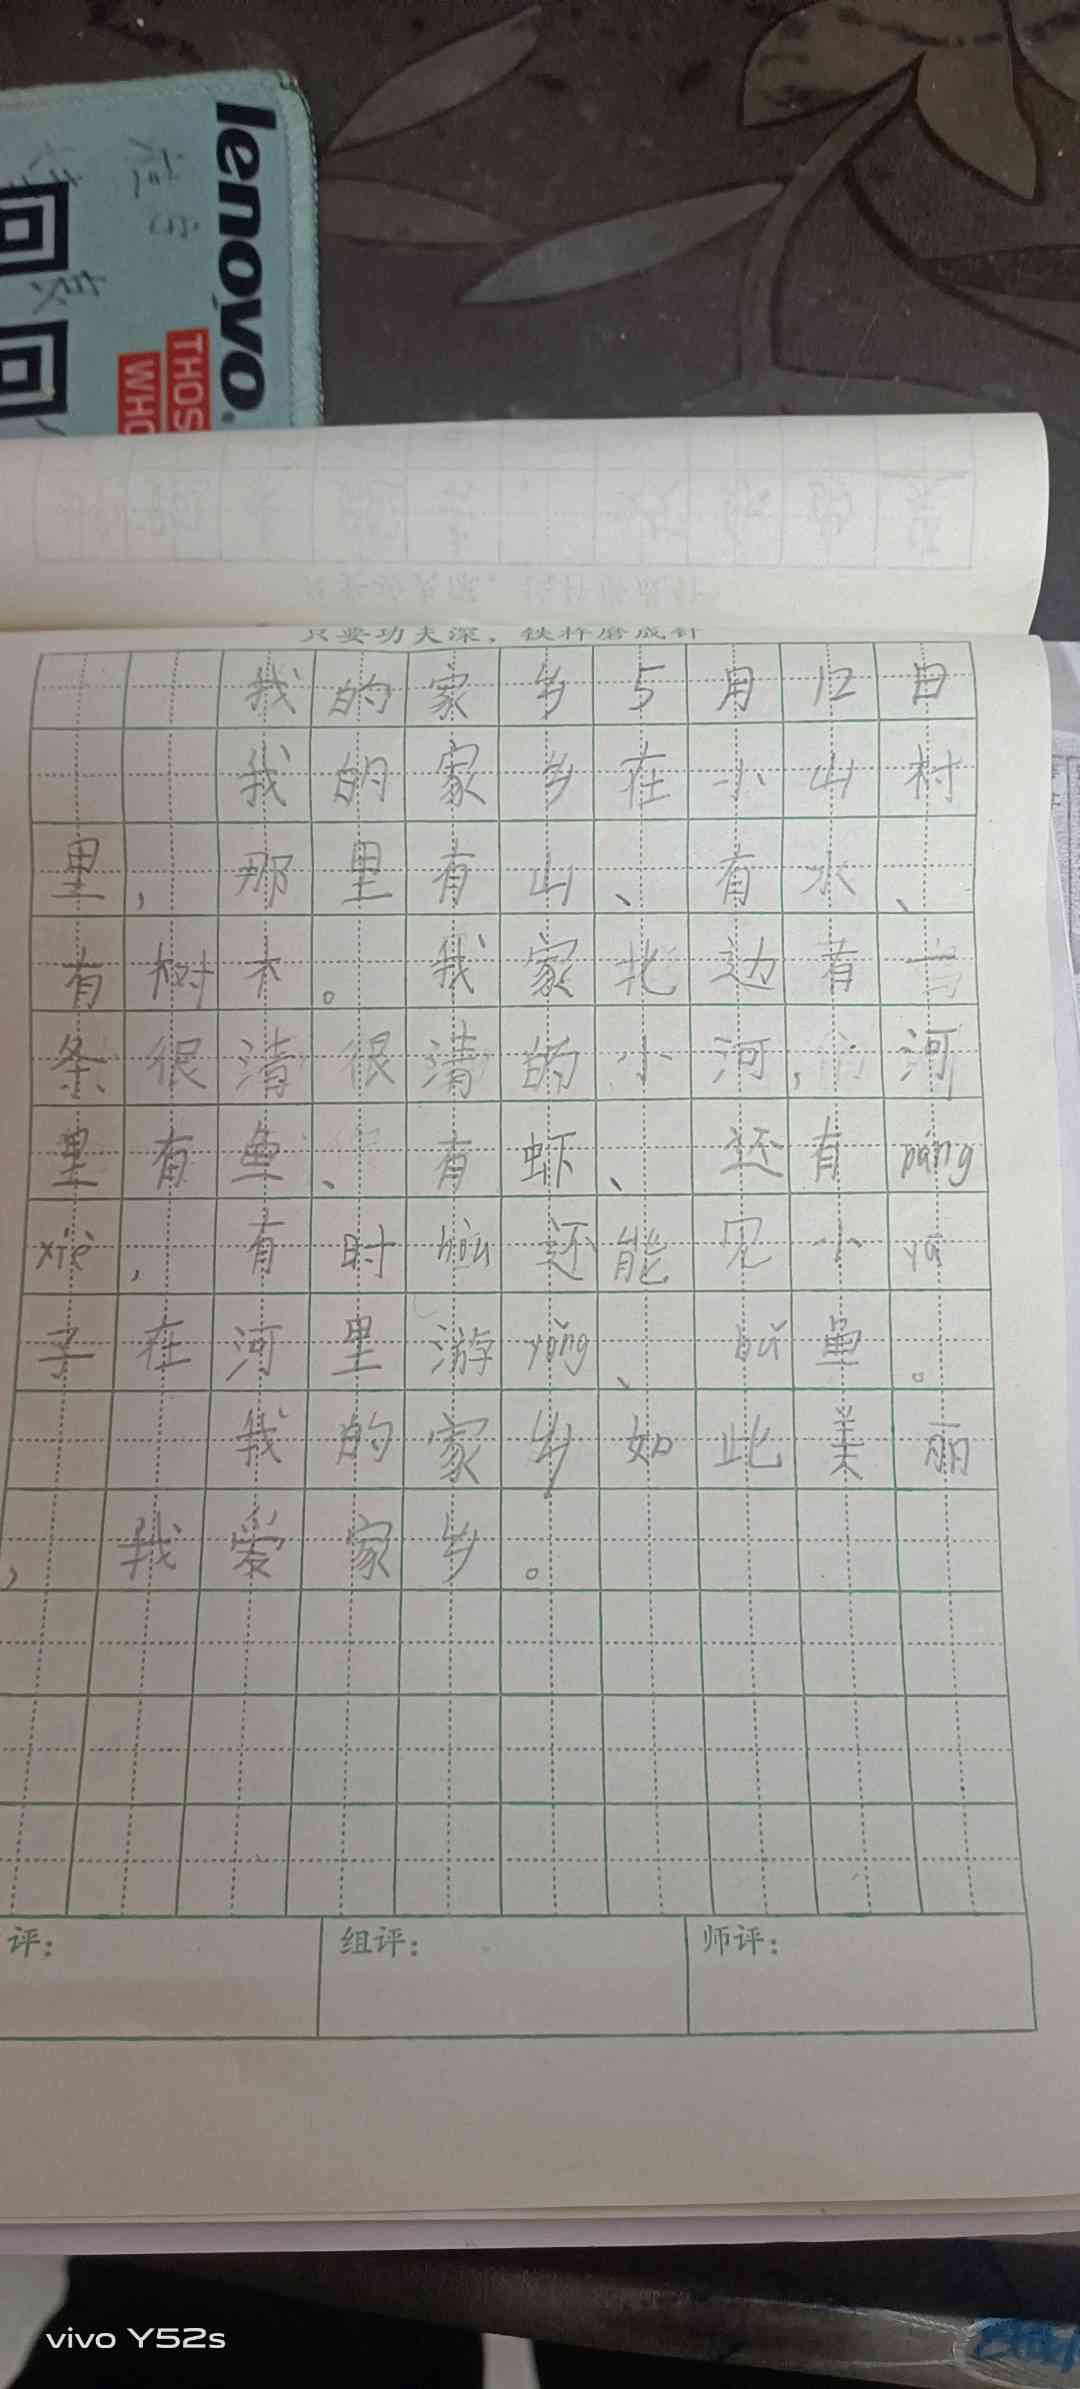 lenovo
THOS
WHO
只要功夫深，铁杵磨成针
我的家乡5月12日
我的家乡在小山村
里，那里有山、有水、
有树木。我家北边有
条很清很清的小河，河
里有鱼、有虾、还有páng
xiè，有时hòu还能见小yā
子在河里游yǒng、bǔ鱼。
我的家乡如此美丽
，我爱家乡。
评：
组评：
师评：
vivo Y52s